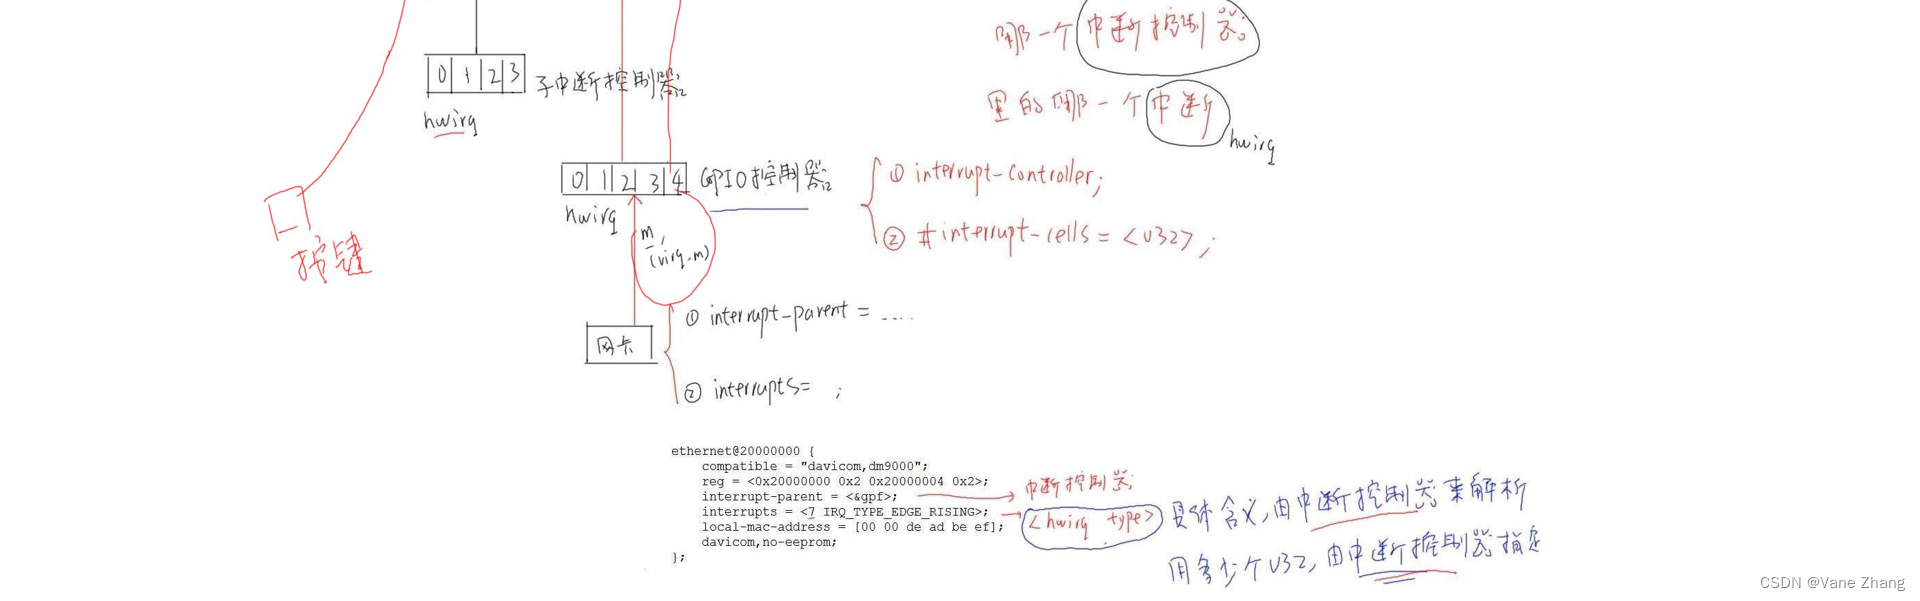 哪一个中断控制器
0 1 2 3 子中断控制器
hwirq
里的哪一个中断
hwirq
0 1 2 3 4 GPIO控制器
hwirq
① interrupt-controller;
② #interrupt-cells = <u32>;
按键
m,
(virq_m)
① interrupt-parent = ....
网卡
② interrupts= ;
ethernet@20000000 {
compatible = "davicom,dm9000";
reg = <0x20000000 0x2 0x20000004 0x2>;
interrupt-parent = <&gpf>; 中断控制器
interrupts = <7 IRQ_TYPE_EDGE_RISING>; <hwirq type> 具体含义,由中断控制器来解析
local-mac-address = [00 00 de ad be ef];
davicom,no-eeprom;
};
用多少个u32,由中断控制器指定
CSDN @Vane Zhang